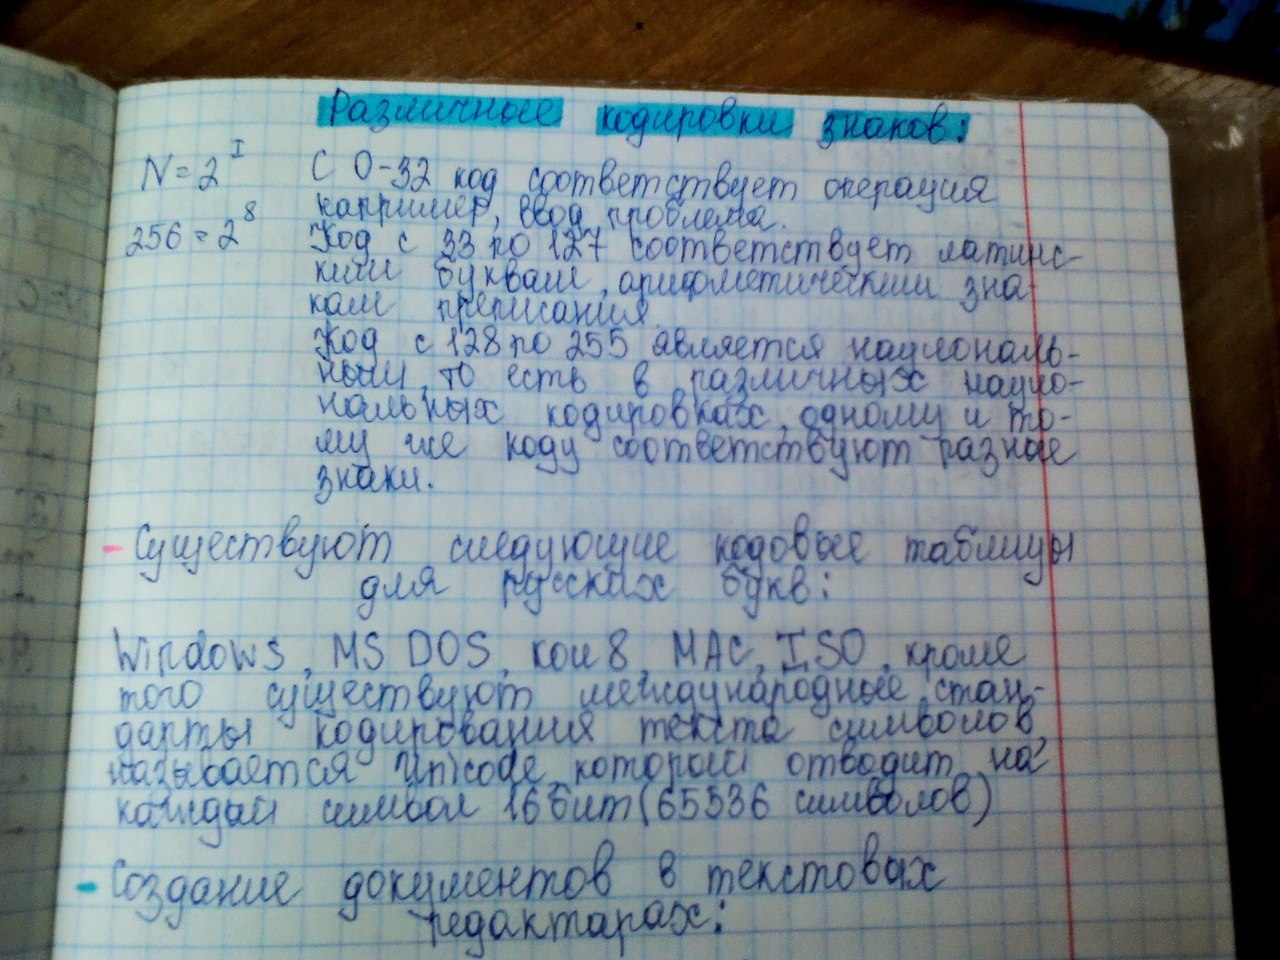 Различные кодировки знаков:
N=2^I С 0-32 код соответствует операция
например, ввод проблема.
256=2^8 Код с 33 по 127 соответствует латинс-
ким буквам, арифметическим зна
кам преписания.
Код с 128 по 255 является националь-
ным, то есть в различных нацио-
нальных кодировках, одному и то-
му же коду соответствуют разные
знаки.
- Существуют следующие кодовые таблицы
для русских букв:
Windows, MS DOS, кои 8, MAC, ISO, кроме
того существуют международные стан-
дарты кодирования текста символов,
называется Unicode, который отводит на
каждай символ 16 бит (65536 символов)
- Создание документов в текстовых
редактарах: